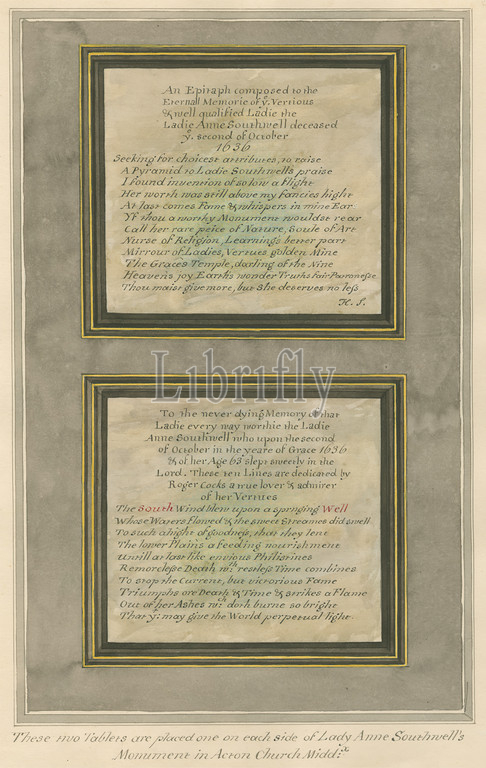 An Epitaph composed to the
Eternall Memorie of yͤ. Vertious
& well qualified Ladie the
Ladie Anne Southwell deceased
yͤ. second of October
1636
Seeking for choicest attributes, to raise
A Pyramid to Ladie Southwells praise
I found invention of so low a flight
Her worth was still above my fancies hight
At last comes Fame & whispers in mine Ear
Yf thou a worthy Monument wouldst rear
Call her rare peice of Nature, Soule of Art
Nurse of Religion, Learnings better part
Mirrour of Ladies, Vertues golden Mine
The Graces Temple, darling of the Nine
Heavens joy Earths wonder Truths fair Patronesse
Thou maist give more, but She deserves no less
H. S.
Librifly
To the never dying Memory of that
Ladie every way worthie the Ladie
Anne Southwell who upon the second
of October in the yeare of Grace 1636
& of her Age 63 slept sweetly in the
Lord. These ten Lines are dedicated by
Roger Cocks a true lover & admirer
of her Vertues
The South Wind blew upon a springing Well
Whose Waters flowed & the sweet Streames did swell
To such a hight of goodness, that they lent
The lower Plains a feeding nourishment
Untill at last like envious Philistines
Remorclesse Death wͭͪ: restless Time combines
To stop the Current, but victorious Fame
Triumphs ore Death & Time & strikes a Flame
Out of her Ashes wͨͪ: doth burne so bright
That yͭ: may give the World perpetual light.
These two Tablets are placed one on each side of Lady Anne Southwell's
Monument in Acton Church Midd:ˣ